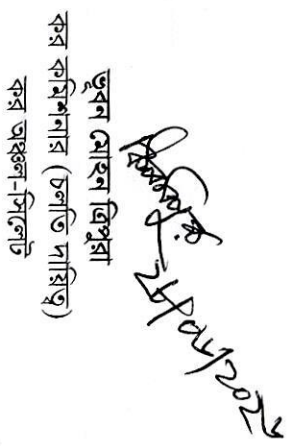 ভূবন মোহন ত্রিপুরা
কর কমিশনার (চলতি দায়িত্ব)
কর অঞ্চল-সিলেট